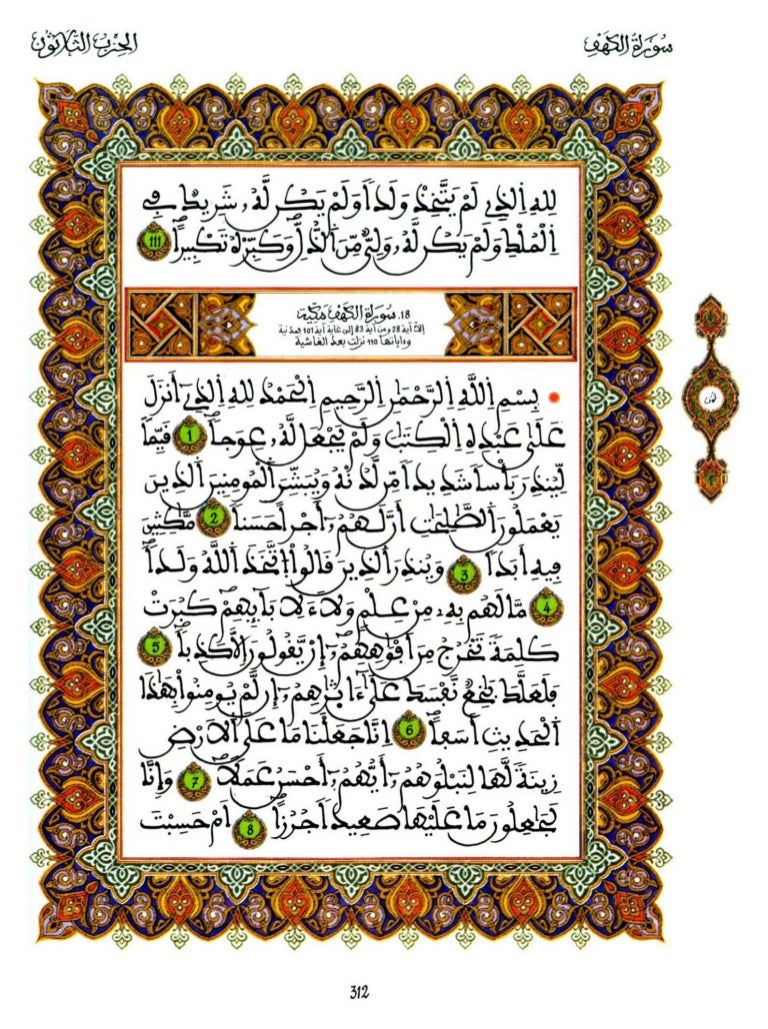 سُورَةُ الكَهْفِ
الحِزْبُ الثَّلَاثُونَ
لِلهِ اِلذِے لَمْ يَتَّخِذْ وَلَداً وَلَمْ يَكُن لَّهُۥ شَرِيكٞ فِے
اِلْمُلْكِ وَلَمْ يَكُن لَّهُۥ وَلِيّٞ مِّنَ اَلذُّلِّ وَكَبِّرْهُ تَكْبِيراًۖ 111
18. سُورَةُ الكَهْفِ مَكِّيَّة
إلا آية 28 ومن آية 83 إلى غاية آية 101 فمدنية
وءاياتها 110 نزلت بعد الغاشية
بِسْمِ اِللَّهِ اِلرَّحْمَٰنِ اِلرَّحِيمِ اِلْحَمْدُ لِلهِ اِلذِےٓ أَنزَلَ
عَلَىٰ عَبْدِهِ اِلْكِتَٰبَ وَلَمْ يَجْعَل لَّهُۥ عِوَجاًۖ 1 قَيِّماٗ
لِّيُنذِرَ بَأْساٗ شَدِيداٗ مِّن لَّدُنْهُ وَيُبَشِّرَ اَلْمُومِنِينَ اَلذِينَ
يَعْمَلُونَ اَلصَّٰلِحَٰتِ أَنَّ لَهُمُۥٓ أَجْراً حَسَناٗ 2 مَّٰكِثِينَ
فِيهِ أَبَداٗ 3 وَيُنذِرَ اَلذِينَ قَالُواْ اُ۪تَّخَذَ اَللَّهُ وَلَداٗۖ
4 مَّا لَهُم بِهِۦ مِنْ عِلْمٖ وَلَا لِأٓبَآئِهِمْۖ كَبُرَتْ
كَلِمَةٗ تَخْرُجُ مِنَ اَفْوَٰهِهِمُۥٓۖ إِنْ يَّقُولُونَ إِلَّا كَذِباٗۖ 5
فَلَعَلَّكَ بَٰخِعٞ نَّفْسَكَ عَلَىٰٓ ءَاثٰ۪رِهِمُۥٓ إِن لَّمْ يُومِنُواْ بِهَٰذَا
اَلْحَدِيثِ أَسَفاًۖ 6 اِنَّا جَعَلْنَا مَا عَلَى اَلَارْضِ
زِينَةٗ لَّهَا لِنَبْلُوَهُمُۥٓ أَيُّهُمُۥٓ أَحْسَنُ عَمَلاٗۖ 7 وَإِنَّا
لَجَٰعِلُونَ مَا عَلَيْهَا صَعِيداٗ جُرُزاًۖ 8 اَمْ حَسِبْتَ
ثمن
312